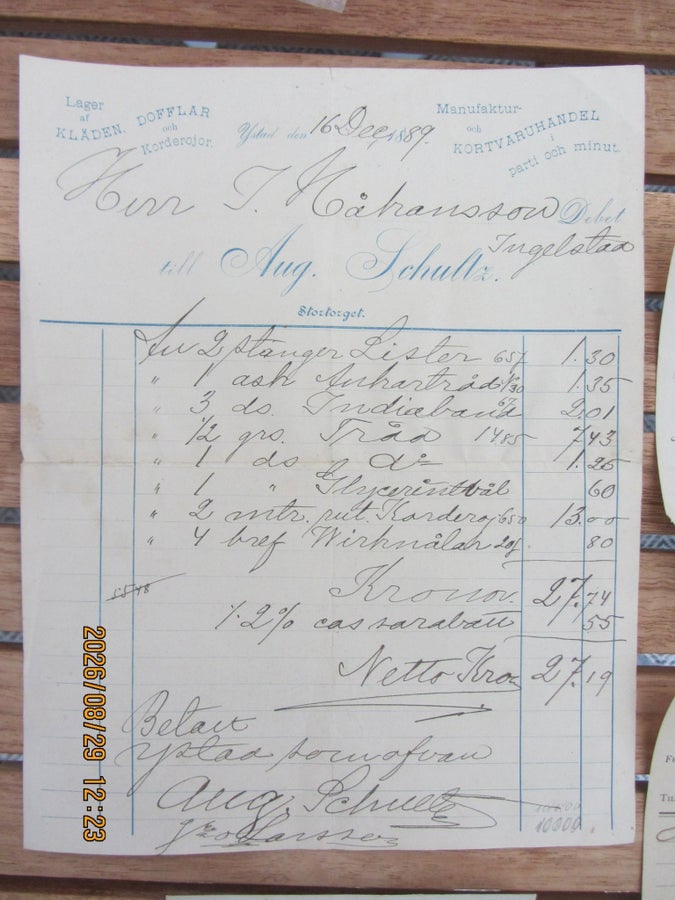 Lager
af
KLÄDEN.
DOFFLAR
och
Korderojor.
Ystad den 16 Dec, 1889.
Manufaktur-
och
KORTVARUHANDEL
i
parti och minut.
Herr I. Håkansson Debet
Ingelstad
till Aug. Schultz.
Stortorget.
2 stänger Lister 65/ 1.30
" 1 ask 1.35
" 3 ds. Indiaband 67 2.01
" 1/2 grs. Tråd 1485 7.43
" 1 ds do 1.25
" 1 " Glycerintvål 60
" 2 mtr. rut. Korderoj 650 13.00
" 4 bref Wirknålar 20/ 80
Kronor 27.74
% 2% cassarabatt 55
Netto Kro 27.19
Betalt
Ystad som ofvan
Aug. Schultz
Larsson
10000
2026/08/29 12:23